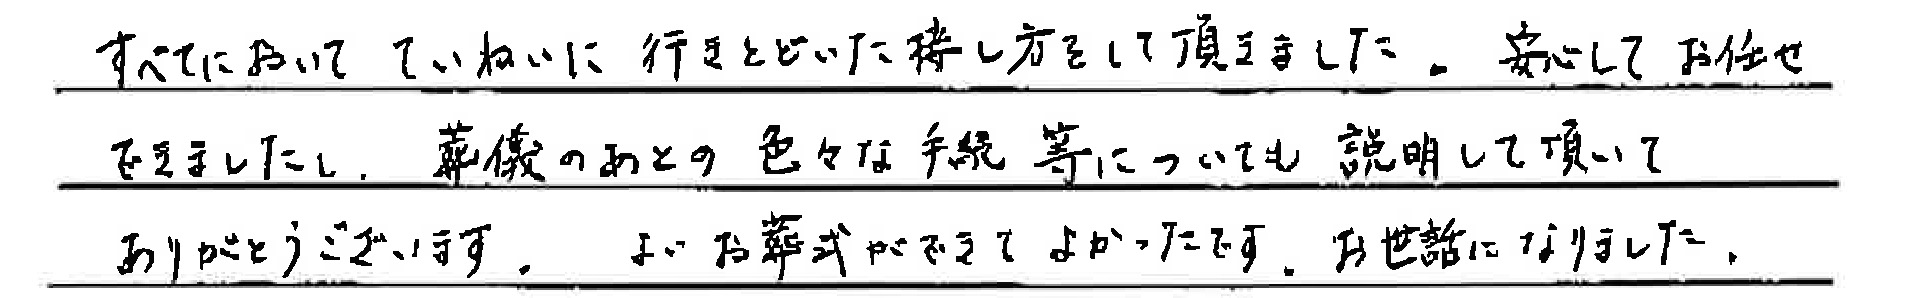 すべてにおいて ていねいに 行きとどいた接し方をして頂きました。安心してお任せ
できましたし、葬儀のあとの色々な手続等についても説明して頂いて
ありがとうございます。 よいお葬式ができてよかったです。お世話になりました。